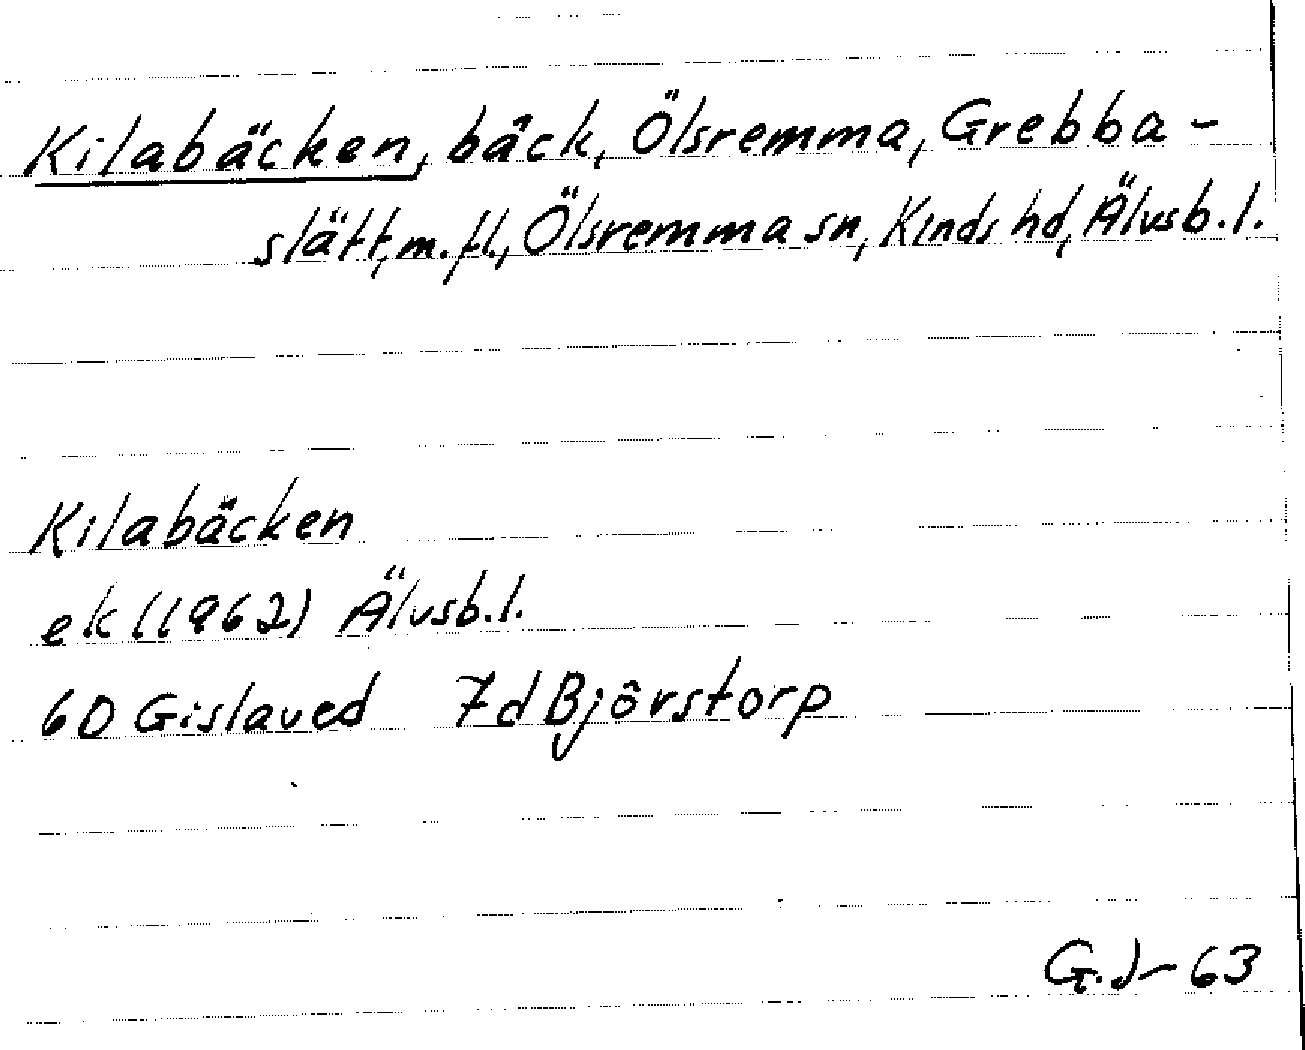 Kilabäcken, bäck, Ölsremma, Grebba-
slätt, m. fl., Ölsremma sn, Kinds hd, Älvsb. l.
Kilabäcken
ek (1962) Älvsb. l.
6D Gislaved 7d Björstorp
G.J-63